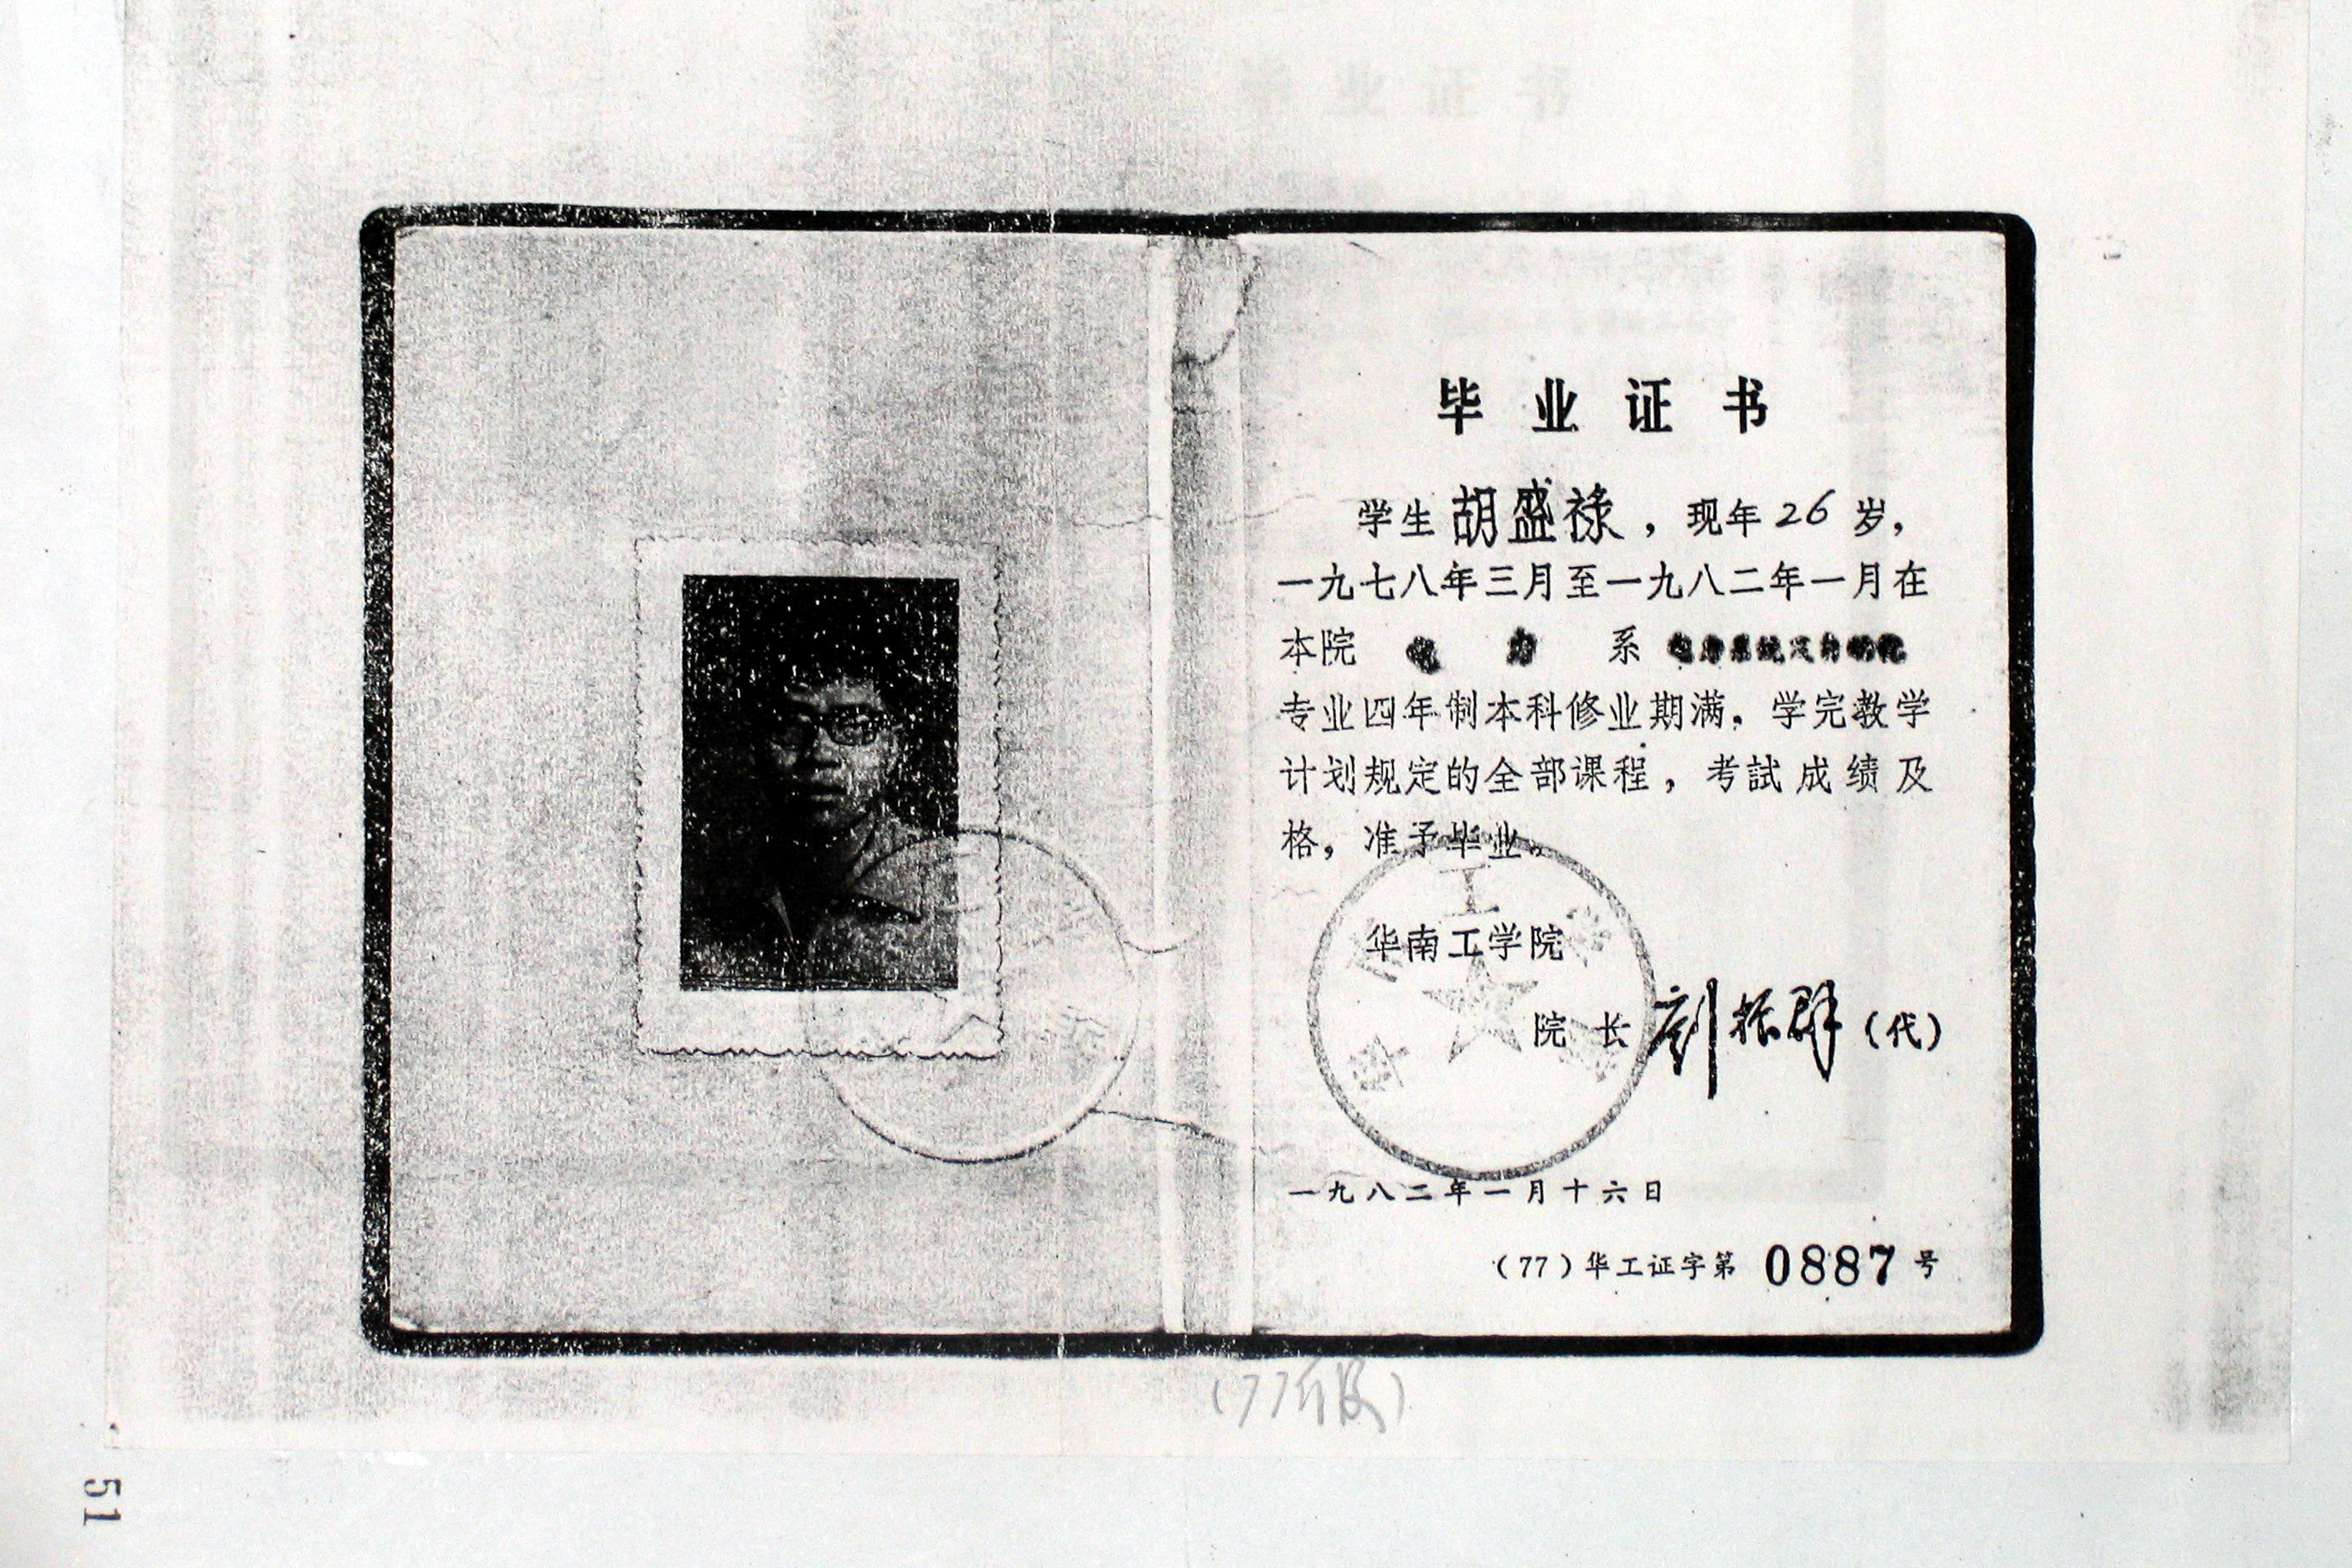 毕业证书
学生胡盛禄，现年26岁，
一九七八年三月至一九八二年一月在
本院 电 力 系 电力系统及自动化
专业四年制本科修业期满，学完教学
计划规定的全部课程，考試成绩及
格，准予毕业。
华南工学院
院长刘振群（代）
一九八二年一月十六日
（77）华工证字第 0887 号
（77年版）
51